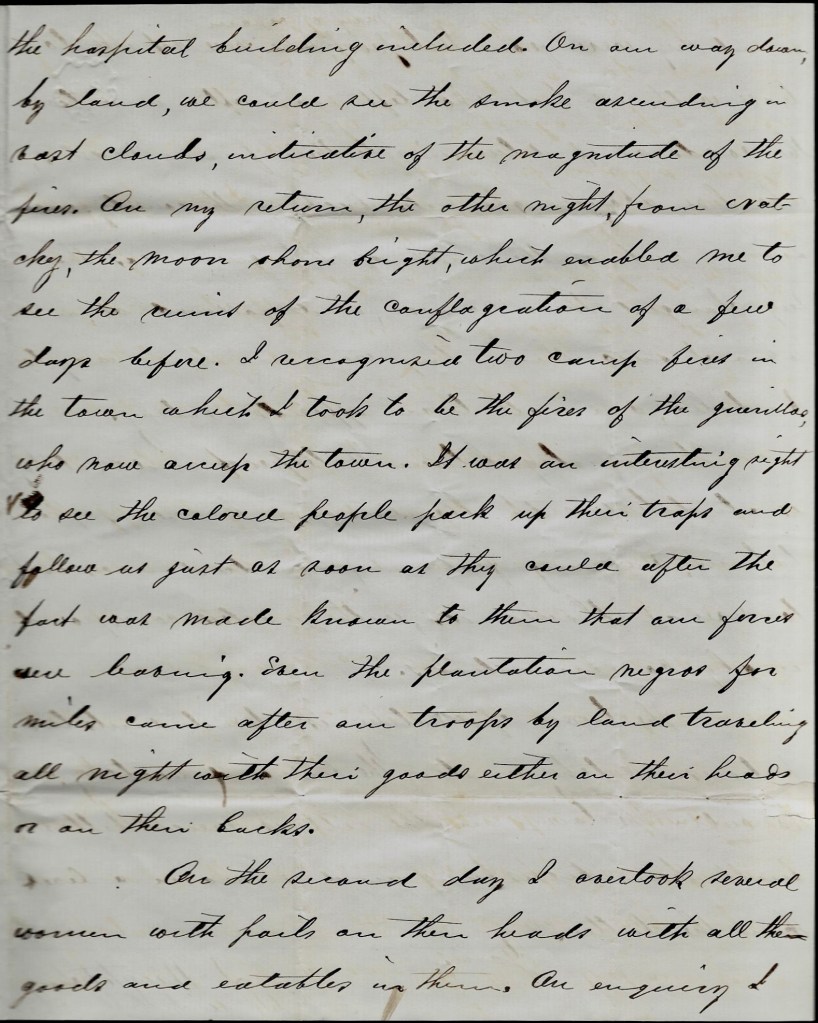 the hospital building included. On our way down,
by land, we could see the smoke ascending in
vast clouds, indicative of the magnitude of the
fires. On my return, the other night, from Nat-
chez, the moon shone bright, which enabled me to
see the ruins of the conflagration of a few
days before. I recognised two camp fires in
the town which I took to be the fires of the guerillas,
who now occupy the town. It was an interesting sight
to see the colored people pack up their traps and
follow us just as soon as they could after the
fact was made known to them that our forces
were leaving. Even the plantation negros for
miles came after our troops by land traveling
all night with their goods either on their heads
or on their backs.
On the second day I overtook several
women with pails on their heads with all their
goods and eatables in them. On enquiry I